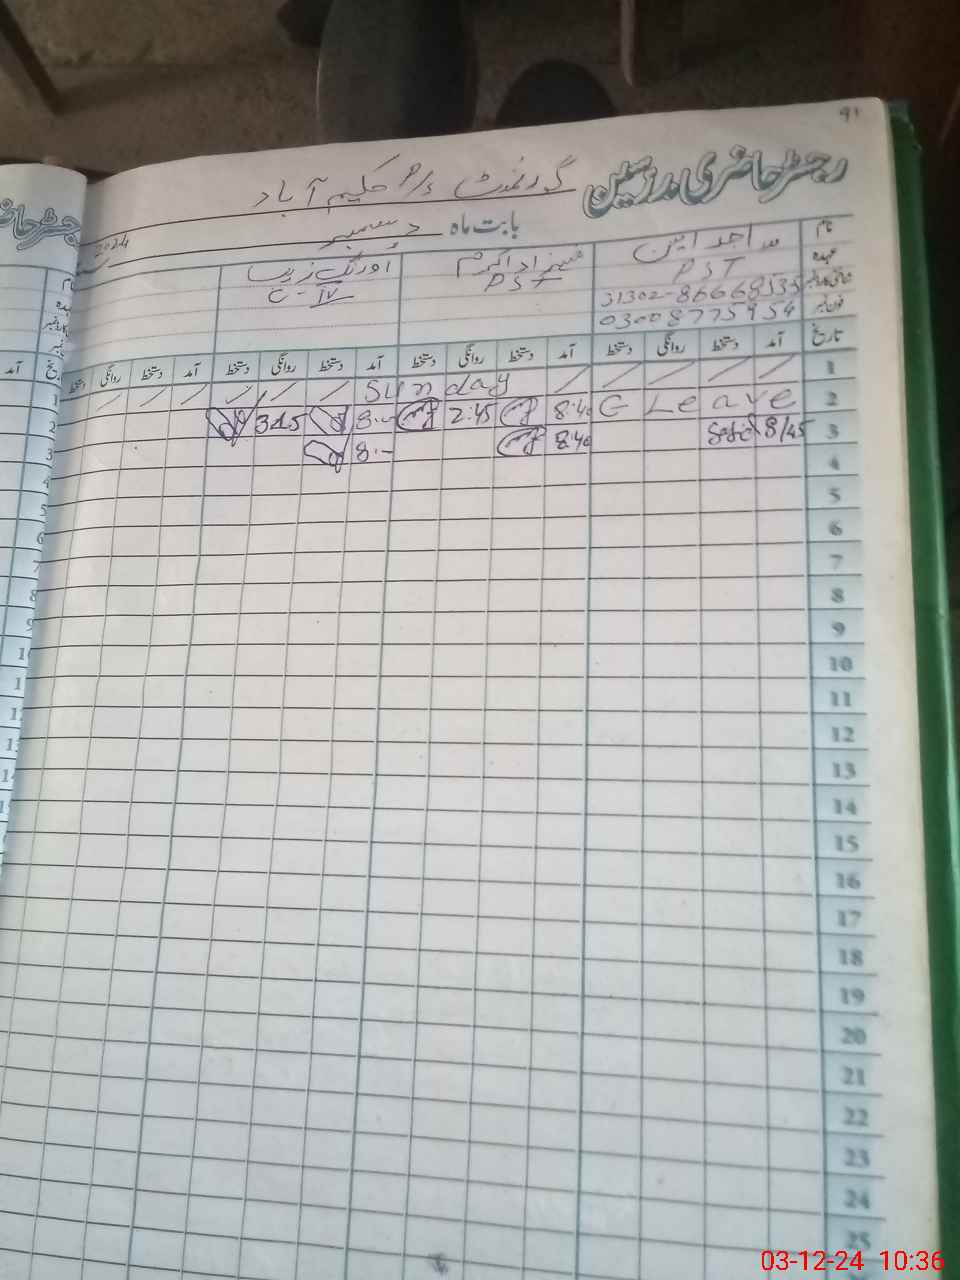 91
رجسٹر حاضری مدرسین گورنمنٹ پرائمری حکیم آباد
بابت ماہ دسمبر 2024
نام ساجد امین شہزاد اکرم اورنگ زیب
عہدہ PST PST C-IV
31302-8666853
03008775954
تاریخ آمد دستخط روانگی دستخط آمد دستخط روانگی دستخط آمد دستخط روانگی دستخط آمد دستخط روانگی دستخط
1 Sunday
2 C Leave 8:40 2:45 8:- 3:15
3 8/45 8:40 8:-
4
5
6
7
8
9
10
11
12
13
14
15
16
17
18
19
20
21
22
23
24
25
03-12-24 10:36